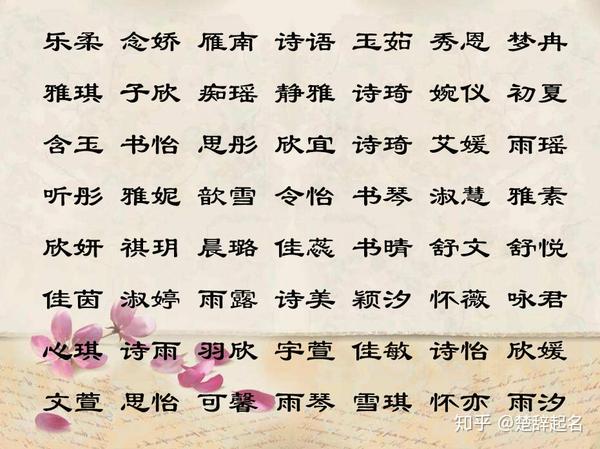 乐柔 念娇 雁南 诗语 玉茹 秀恩 梦冉
雅琪 子欣 痴瑶 静雅 诗琦 婉仪 初夏
含玉 书怡 思彤 欣宜 诗琦 艾媛 雨瑶
听彤 雅妮 歆雪 令怡 书琴 淑慧 雅素
欣妍 祺玥 晨璐 佳蕊 书晴 舒文 舒悦
佳茵 淑婷 雨露 诗美 颖汐 怀薇 咏君
心琪 诗雨 羽欣 宇萱 佳敏 诗怡 欣媛
文萱 思怡 可馨 雨琴 雪琪 怀亦 雨汐
知乎 @楚辞起名